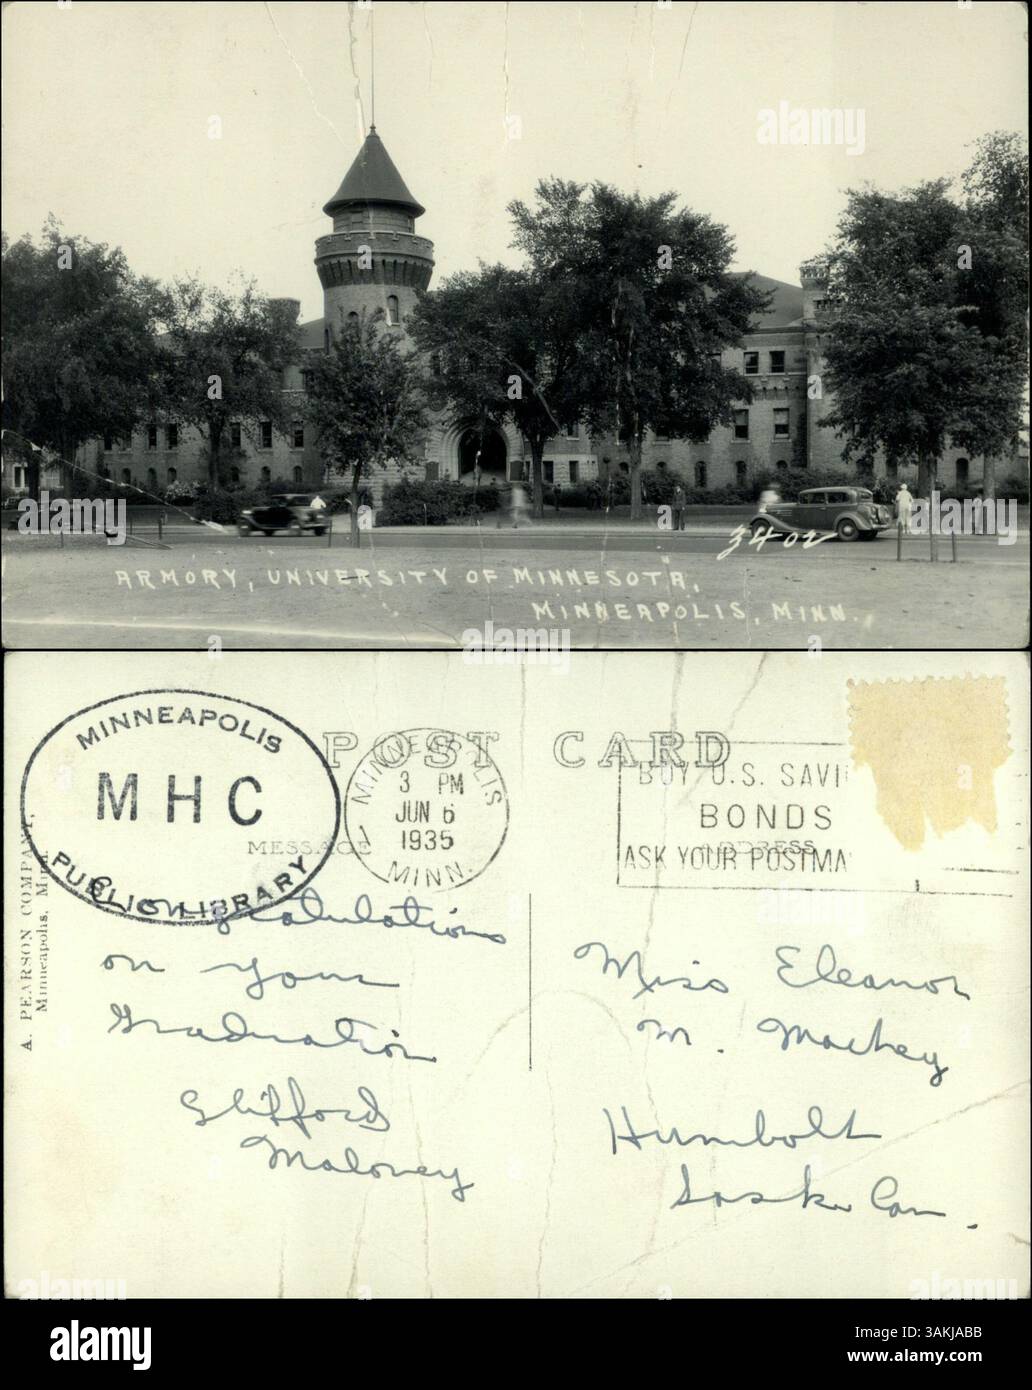 3402
ARMORY, UNIVERSITY OF MINNESOTA,
MINNEAPOLIS, MINN.
POST CARD
MINNEAPOLIS
M H C
PUBLIC LIBRARY
MINNEAPOLIS
3 PM
JUN 6
1935
MINN.
BUY U.S. SAVI
BONDS
ASK YOUR POSTMA
MESSAGE
ADDRESS
A. PEARSON COMPANY,
Minneapolis, Minn.
Congratulations
on your
Graduation
Clifford
Maloney
Miss Eleanor
M. Mackey
Humbolt
Sask. Can.
alamy
Image ID: 2AKJABB
www.alamy.com